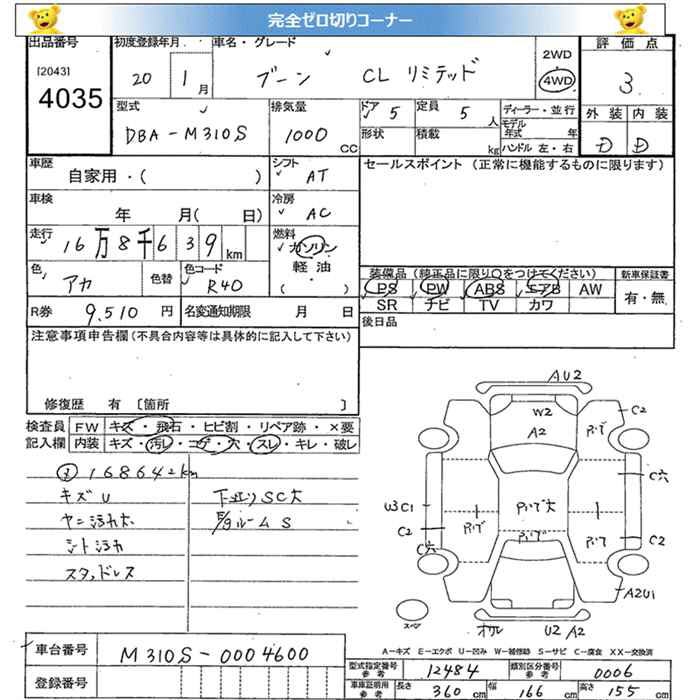 完全ゼロ切りコーナー
出品番号 初度登録年月 車名・グレード 2WD 評価点
[2043] 4035 20 年 1 月 ブーン CL リミテッド 4WD 3
型式 排気量 ドア 5 定員 5 人 ディーラー・並行 外装 内装
DBA-M310S 1000 CC 形状 積載 kg モデル年式 年 D D
ハンドル 左・右
車歴 シフト セールスポイント (正常に機能するものに限ります)
自家用・( ) AT
車検 冷房
年 月( 日) AC
走行 燃料
16万8千639km ガソリン
軽油
色 色コード ( ) 装備品 (純正品に限り○をつけてください) 新車保証書
アカ 色替 R40 PS PW ABS エアB AW 有・無
SR ナビ TV カワ
R券 9,510 円 名変通知期限 月 日 後日品
注意事項申告欄 (不具合内容等は具体的に記入して下さい)
修復歴 有 〔箇所 〕
検査員 FW キズ・飛石・ヒビ割・リペア跡・×要
記入欄 内装 キズ・汚れ・コゲ・穴・スレ・キレ・破レ
168642km
キズU 下廻りSC大
ヤニ汚れ大 ルームS
シート汚れ
スタッドレス
AU2
W2 C2
A2
C穴
U3C1
C2 C2
C穴
A2U1
スペア U2 A2
A-キズ E-エクボ U-凹み W-補修跡 S-サビ C-腐食 XX-交換済
車台番号 M310S-0004600
型式指定番号 参考 12484 類別区分番号 参考 0006
登録番号 車庫証明用 参考 長さ 360 cm 幅 166 cm 高さ 155 cm